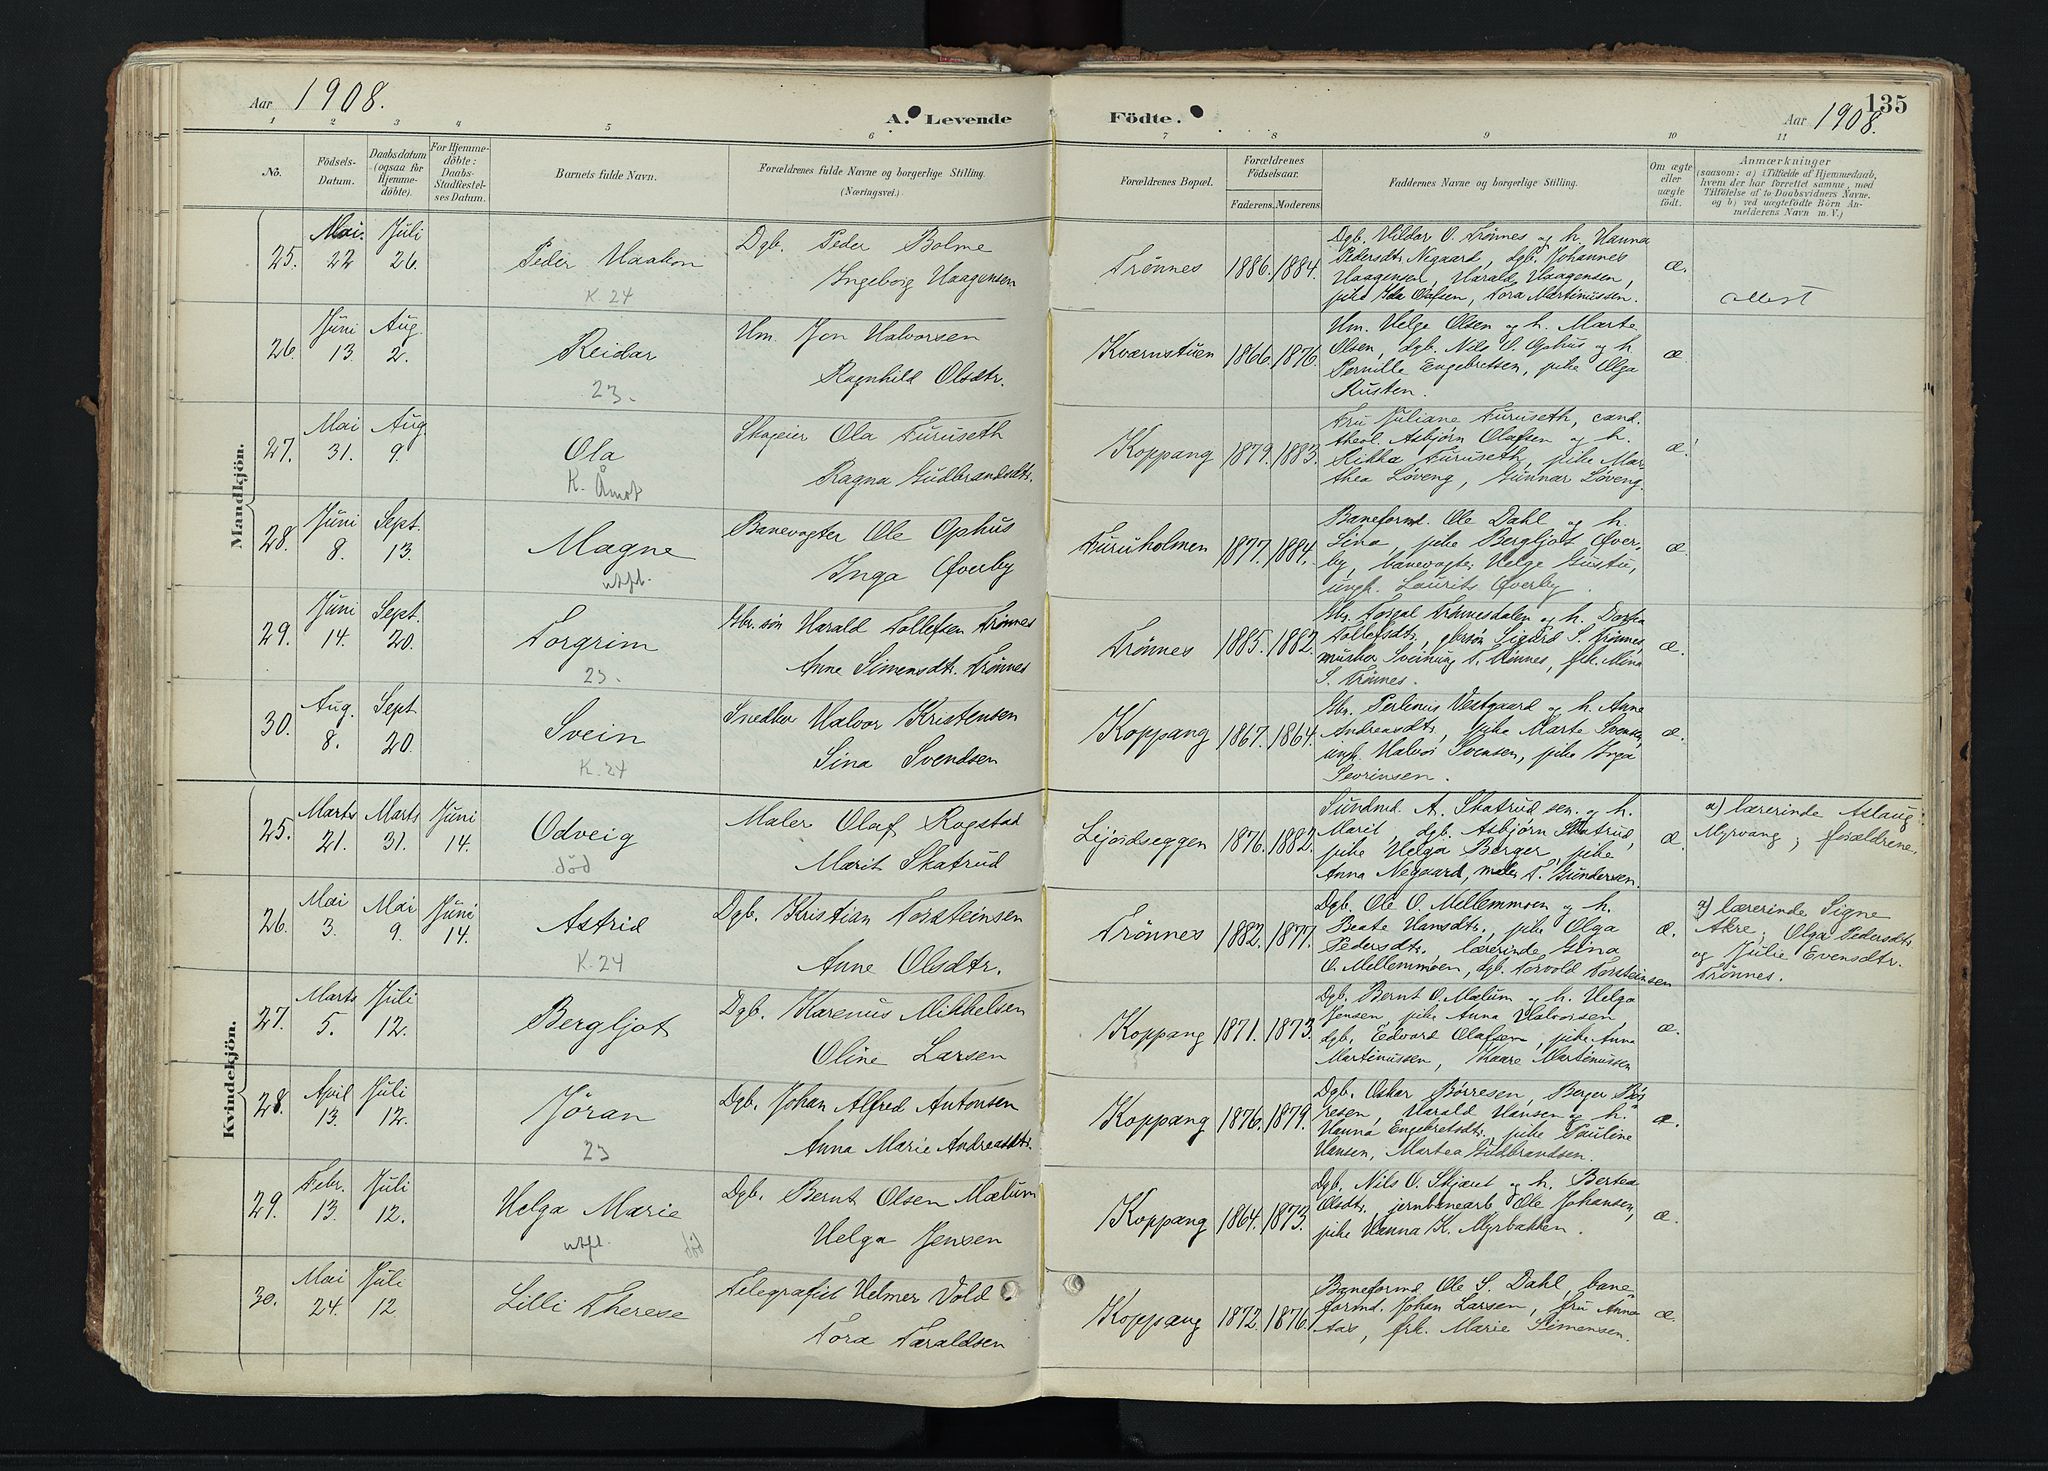 Aar 1908.
A. Levende
Födte.
Aar 1908.
135
1 2 3 4 5 6 7 8 9 10 11
No.
Födsels-
Datum.
Daabsdatum
(ogsaa for
Hjemme-
döbte).
For Hjemme-
döbte:
Daabs-
Stadfæstel-
ses Datum.
Barnets fulde Navn.
Forældrenes fulde Navne og borgerlige Stilling.
(Næringsvei.)
Forældrenes Bopæl.
Forældrenes
Födselsaar.
Faderens. Moderens.
Faddernes Navne og borgerlige Stilling.
Om ægte
eller
uægte
født.
Anmærkninger
(saasom: a) i Tilfælde af Hjemmedaab,
hvem der har forrettet samme, med
Tilföielse af to Daabsvidners Navne.
og b) ved uægtefödte Börn An-
melderens Navn m. V.)
Mandkjön.
25. Mai 22 Juli 26.
Peder Haakon
K. 24
Dgb. Peder Bolme
Ingeborg Haagensen
Trønnes 1886. 1884.
Dgb. Hildor O. Trønnes og h. Hanna
Pedersdtr. Negaard, dgb. Johannes
Haagensen, Harald Haagensen,
pike Ida Olafsen, Tora Martinussen.
æ.
attest
26. Juni 13. Aug. 2.
Reidar
23.
Hm. Jon Halvorsen
Ragnhild Olsdtr.
Kværnstuen 1866. 1876.
Hm. Helge Olsen og h. Marte
Olsen, dgb. Nils O. Ophus og h.
Pernille Engebretsen, pike Olga
Rusten.
æ
27. Mai 31. Aug. 9.
Ola
K. Åmot
Skogeier Ola Furuseth
Ragna Gudbrandsdtr.
Koppang 1879. 1883.
Fru Juliane Furuseth, cand.
theol. Asbjørn Olafsen og h.
Rikka Furuseth, pike Mar-
thea Løveng, Gunnar Løveng.
æ.
28. Juni 8. Sept. 13.
Magne
utfl.
Banevogter Ole Ophus
Inga Øverby
Furuholmen 1877. 1884.
Baneformd. Ole Dahl og h.
Lina, pike Bergljot Øver-
by, banevogter Helge Gustu,
ungk. Laurits Øverby.
æ.
29. Juni 14. Sept. 20.
Torgrim
23.
Gbr. søn Harald Tollefsen Trønnes
Anne Simensdtr. Trønnes
Trønnes 1885. 1882.
Gbr. Torgal Trønnesdalen og h. Dorte
Tollefsdtr., gbrsøn Sigurd S. Trønnes,
murer Sveinung T. Trønnes, frk. Mina
S. Trønnes.
æ.
30. Aug. 8. Sept 20.
Svein
K. 24
Snedker Halvor Kristensen
Sina Svendsen
Koppang 1867. 1864.
Gbr. Perlinus Vestgaard og h. Anne
Andreasdtr., pike Marte Svensen,
ungk. Halvor Svensen, pike Inga
Sevrinsen.
æ.
Kvindekjön.
25. Marts 21. Marts 31. Juni 14.
Odveig
död
Maler Olaf Rogstad
Marit Skatrud
Lejordseggen 1876. 1882.
Sundmd. A. Skatrud sen. og h.
Marit, dgb. Asbjørn Skatrud,
pike Helga Berger, pike
Anna Negaard, maler T. Gundersen.
æ.
a) lærerinde Aslaug
Myrvang; forældrene.
26. Mai 3. Mai 9. Juni 14.
Astrid
K. 24
Dgb. Kristian Torsteinsen
Anne Olsdtr.
Trønnes 1882. 1877.
Dgb. Ole O. Mellemmoen og h.
Beate Hansdtr., pike Olga
Pedersdtr. lærerinde Gina
O. Mellemmoen, dgb. Torvold Torsteinsen
æ.
a) lærerinde Signe
Akre; Olga Pedersdtr.
og Julie Evensdtr.
Trønnes.
27. Marts 5. Juli 12.
Bergljot
Dgb. Karenus Mikkelsen
Oline Larsen
Koppang 1871. 1873.
Dgb. Bernt O. Mælum og h. Helga
Jensen, pike Anna Halvorsen,
dgb. Edvard Olafsen, pike Anna
Martinussen, Kaare Martinussen
æ.
28. April 13. Juli 12.
Jöran
23
Dgb. Johan Alfred Antonsen
Anna Marie Andreasdtr.
Koppang 1876. 1879.
Dgb. Oskar Børresen, Berger Bør-
resen, Harald Hansen og h.
Hanna Engebretsdtr., pike Pauline
Hansen, Martea Gudbrandsen.
æ.
29. Febr. 13. Juli 12.
Helga Marie
utfl. död
Dgb. Bernt Olsen Mælum
Helga Jensen
Koppang 1864. 1873.
Dgb. Nils O. Skjæret og h. Bertea
Olsdtr., jernbanearb Ole Johansen,
pike Hanna K. Myrbakken.
æ.
30. Mai 24. Juli 12
Lilli Therese
Telegrafist Helmer Vold
Tora Taraldsen
Koppang 1872. 1876.
Baneformd. Ole S. Dahl, bane-
formd. Johan Larsen, fru Anna
Aas, frk. Marie Simensen.
æ.